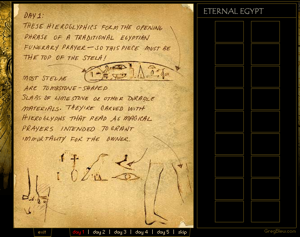 DAY 1:
THESE HIEROGLYPHICS FORM THE OPENING
PHRASE OF A TRADITIONAL EGYPTIAN
FUNERARY PRAYER—SO THIS PIECE MUST BE
THE TOP OF THE STELA!
MOST STELAE
ARE TOMBSTONE-SHAPED
SLABS OF LIMESTONE OR OTHER DURABLE
MATERIALS. THEY'RE CARVED WITH
HIEROGLYPHS THAT READ AS MAGICAL
PRAYERS INTENDED TO GRANT
IMMORTALITY FOR THE OWNER.
ETERNAL EGYPT
exit
day 1 | day 2 | day 3 | day 4 | day 5 | skip